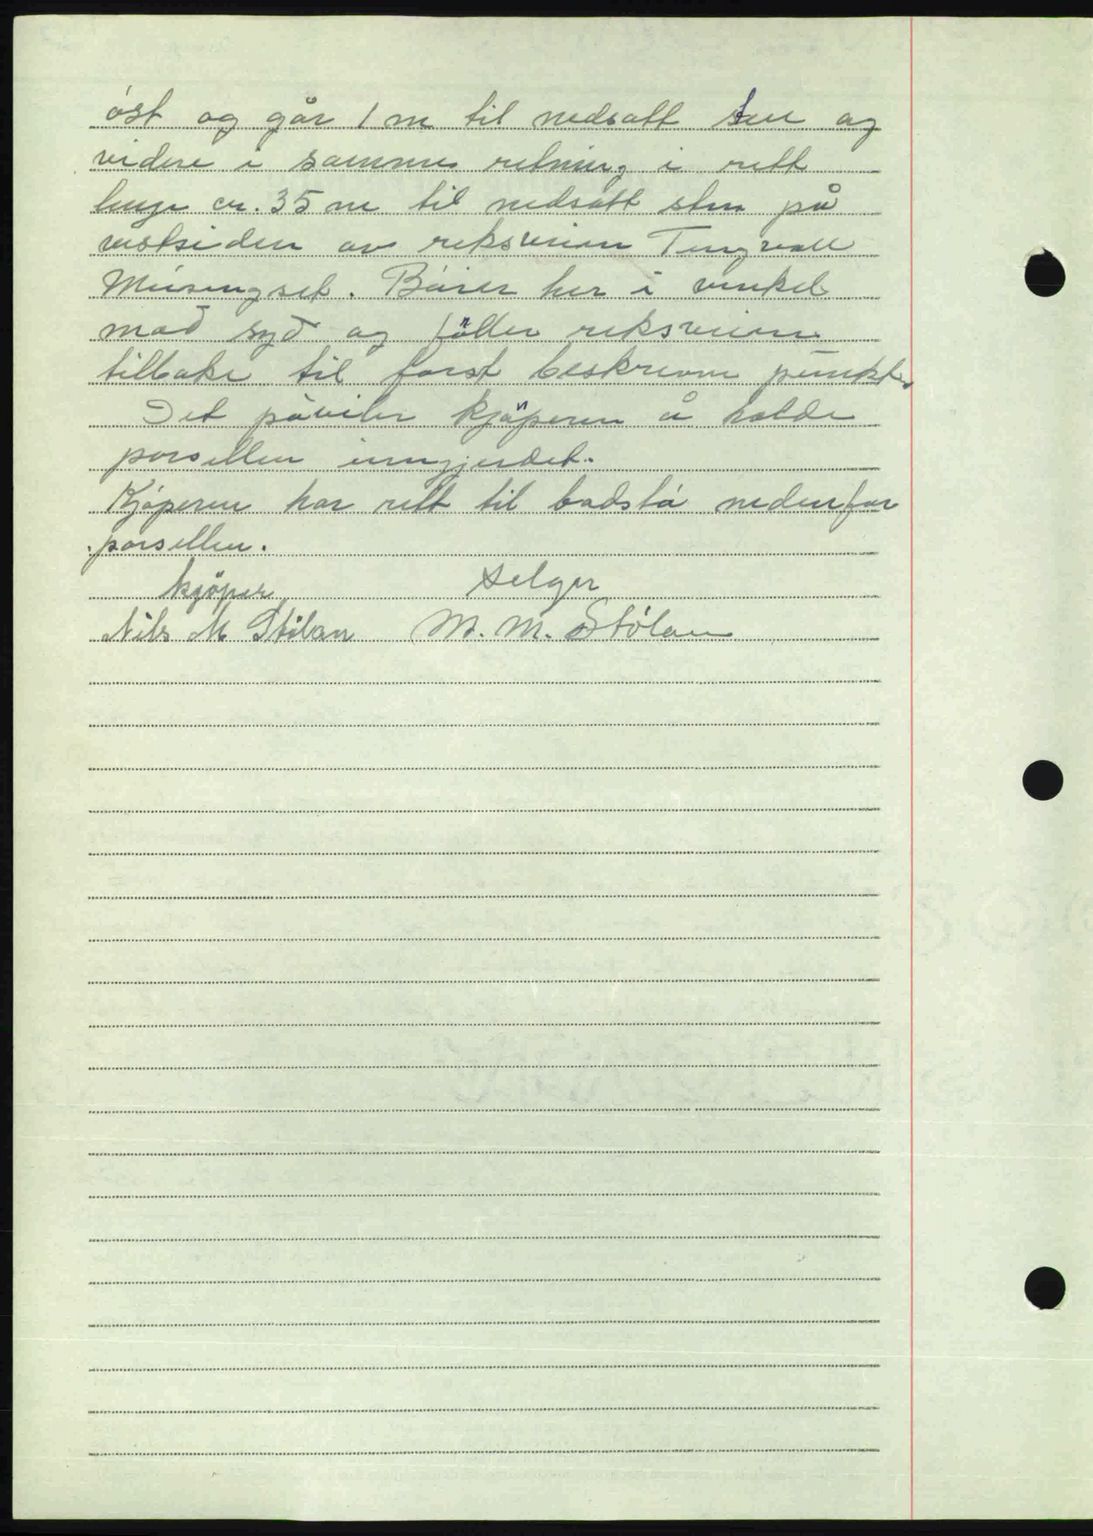 öst og går 1 m til nedsatt sten og
videre i samme retning i rett
linje ca. 35 m til nedsatt sten på
vestsiden av riksveien Tingvoll
Meisingset. Böier her i vinkel
mod syd og föller riksveien
tilbake til först beskrevne punkt.
Det påviler kjöperen å holde
parsellen inngjerdet.
Kjöperen har rett til badstö nedenfor
parsellen.
kjöper selger
Nils M Stölan M. M. Stölan